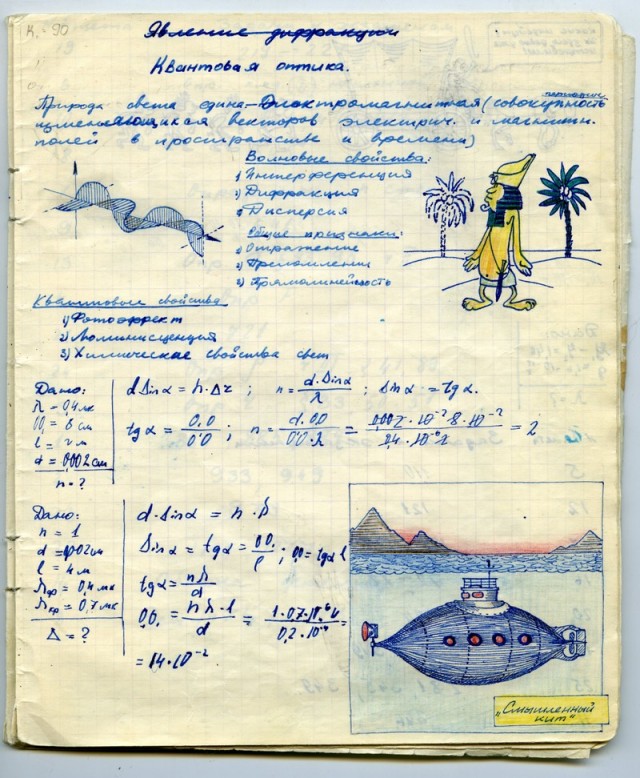 К.-90
Явление дифракции
Квантовая оптика.
Природа света едина - Электромагнитная (совокупность
изменяющихся векторов электрич. и магнитн.
полей в пространстве и времени)
Волновые свойства:
1) Интерференция
2) Дифракция
3) Дисперсия
Общие признаки:
1) Отражение
2) Преломление
3) Прямолинейность
Квантовые свойства
1) Фотоэффект
2) Люминисценция
3) Химическое свойства свет
Дано:
λ = 0,4 мк
l = 2 м
d = 0,002 см
n = ?
d Sin α = n · Δr ; n = d·Sinα/λ ; Sin α = tg α.
= 2
Дано:
n = 1
d = 0,002 см
l = 4 м
λф = 0,4 мк
λкр = 0,7 мк
Δ = ?
d · Sin α = n · λ
tg α = nλ/d
= 14·10⁻².
"Смышленный
кит"